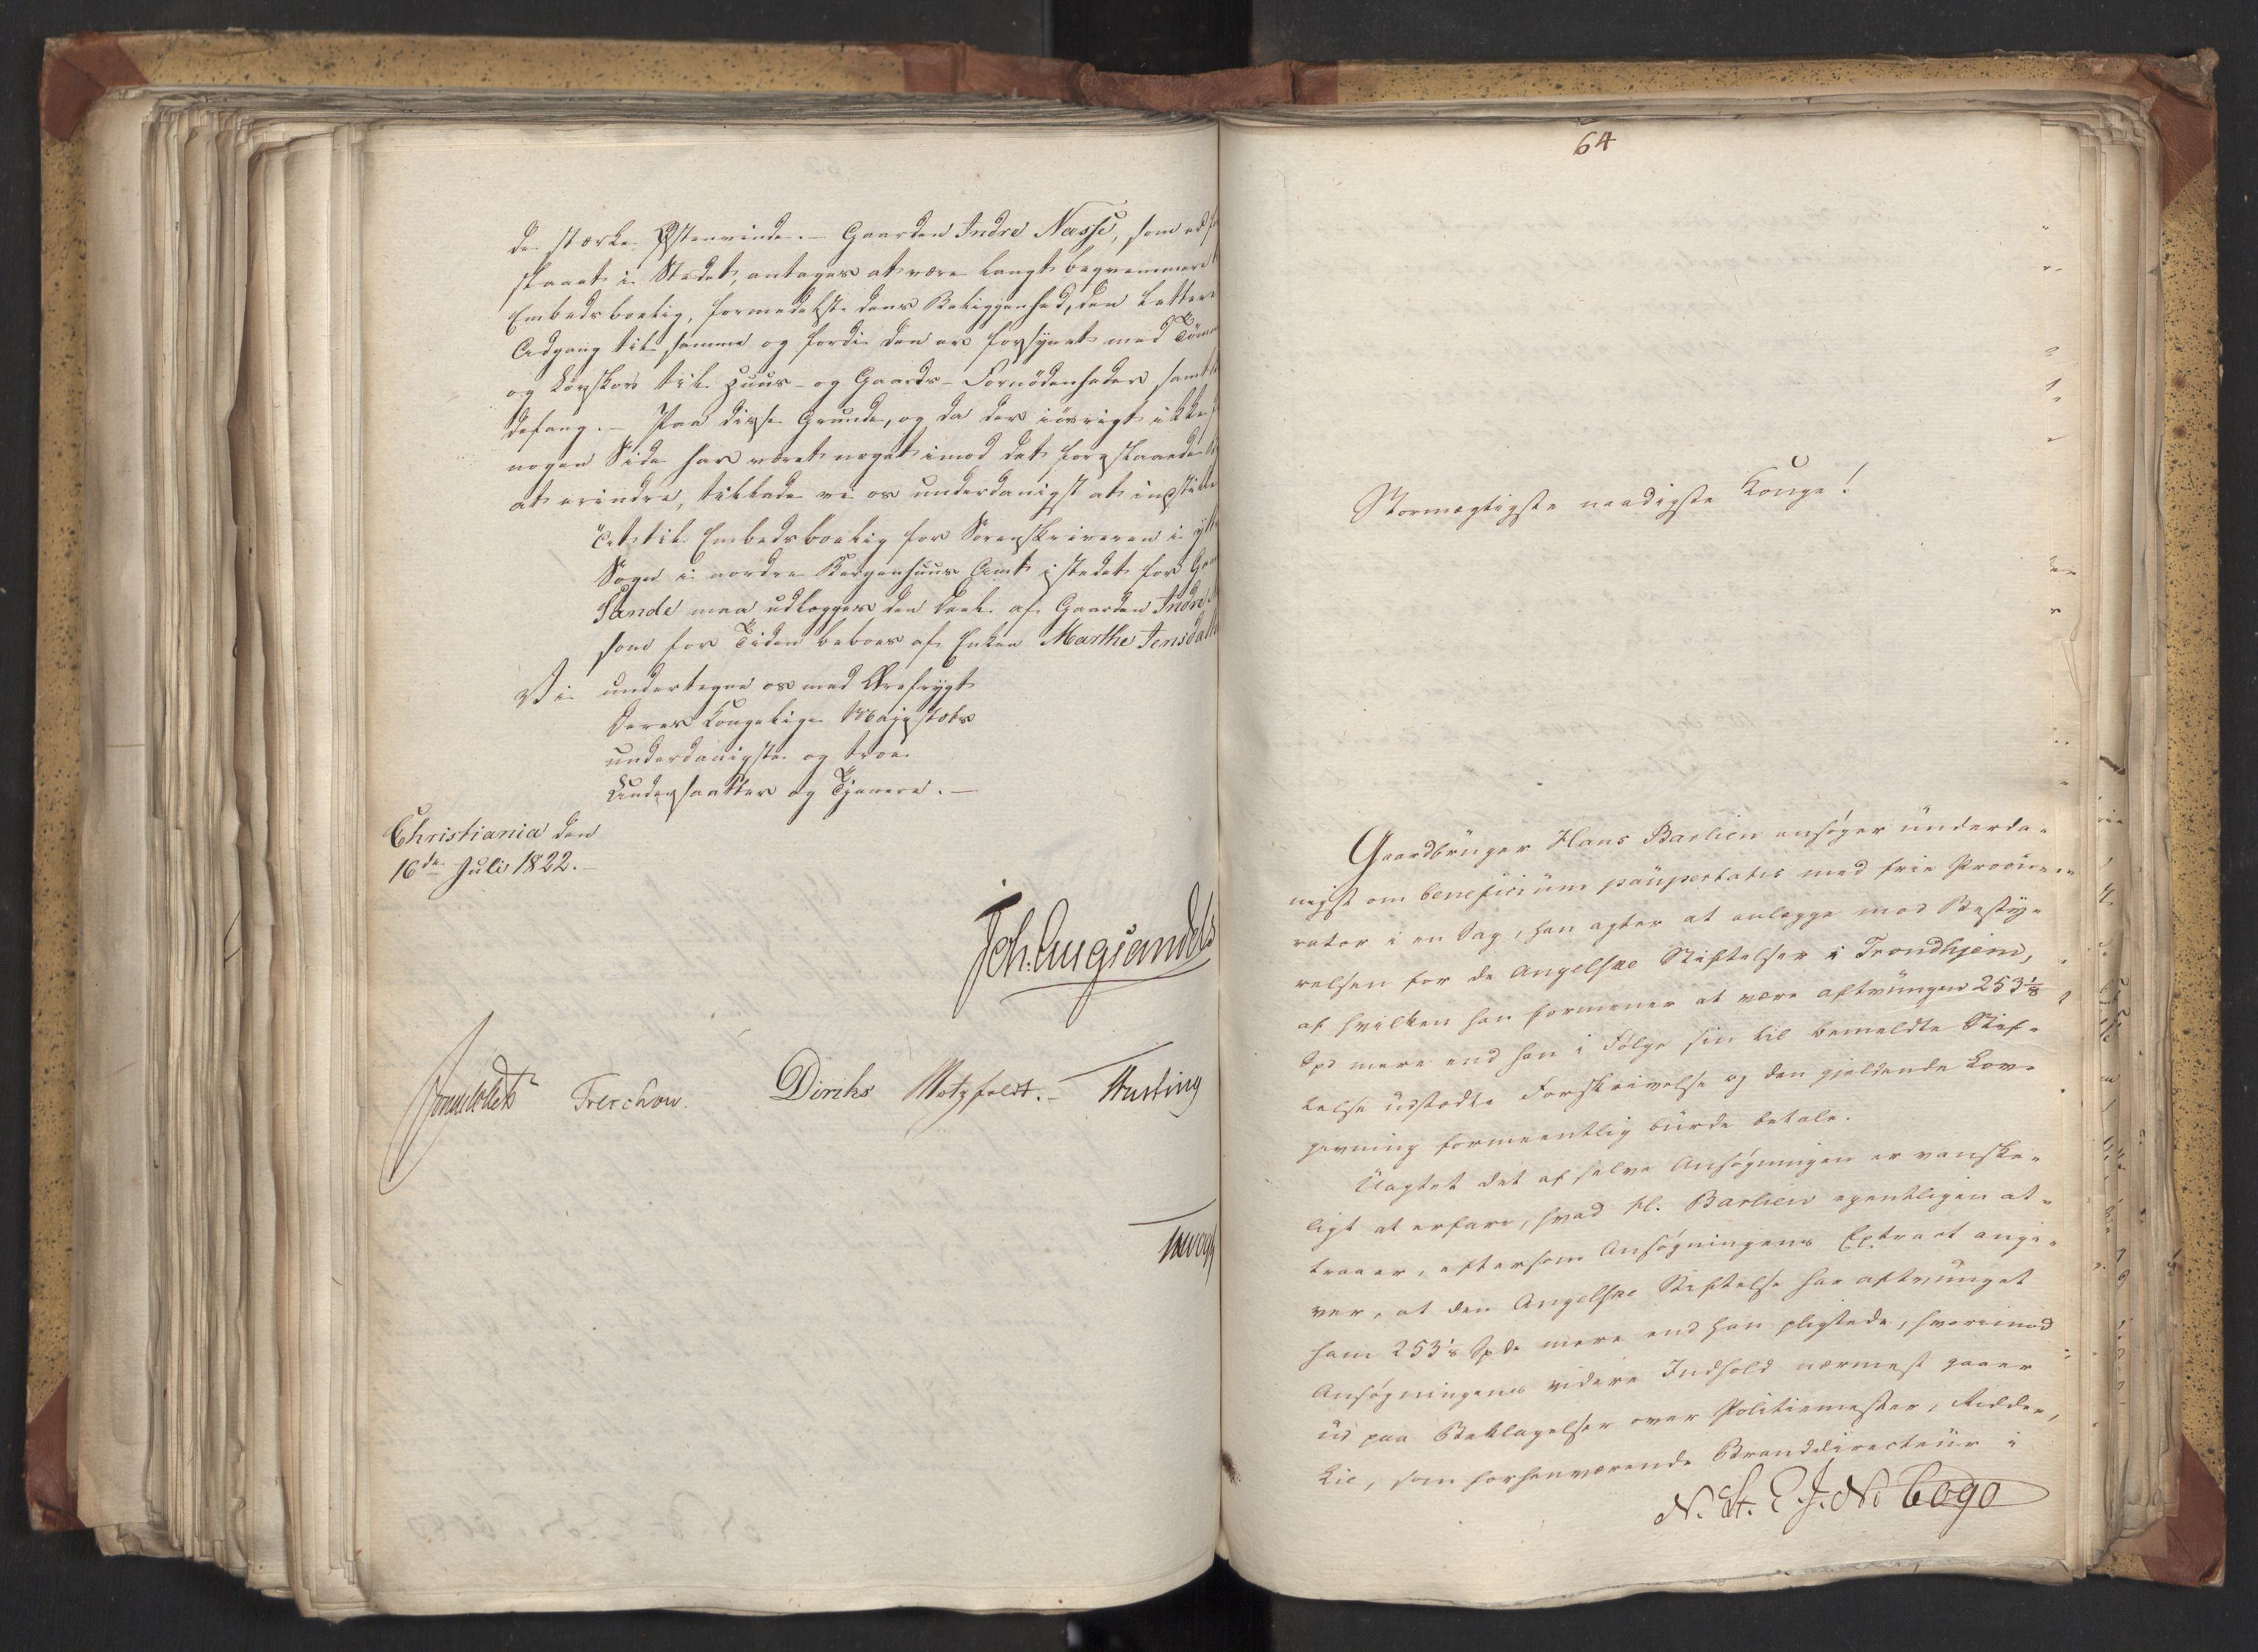 de stærke Østenvinde. – Gaarden Indre Næsse, som er
skaaet i Stedet, antages at være langt beqvemmere
Embedsboelig, formedelst dens Beliggenhed, den lettere
Adgang til samme og fordi den er forsynet med Tömmer
og Løvskov til Huus- og Gaards-Fornödenheder samt
defang. – Paa disse Grunde, og da der iøvrigt ikke
nogen Side har været noget imod det foreslaaede
at erindre, tillade vi os underdanigst at indstille
"At til Embedsboelig for Sorenskriveren i ytre
Sogn i nordre Bergenhuus Amt istedet for
Sande maa udlægges den Deel af Gaarden Indre
som for Tiden beboes af Enken Marthe Jensdatter
Vi undertegne os med Ærefrygt
Deres Kongelige Majestæts
underdanigste og troe
Undersaatter og Tjenere. –
Christiania den
16de Juli 1822. –
Joh. Aug. Sandels
Sommerhielm Treschow. Diriks Motzfeldt. – Krefting
Hvoslef
64
Stormægtigste naadigste Konge!
Gaardbruger Hans Barlien ansøger underda-
nigst om beneficium paupertatis med frie Procu-
rator i en Sag, han agter at anlægge mod Besty-
relsen for de Angelske Stiftelser i Trondhjem,
af hvilken han formener at være aftvungen 253 1/8
Spd mere end han i Følge sin til bemeldte Stif-
telse udstædte Forskrivelse og den gjeldende Lov-
givning formeentlig burde betale.
Uagtet det af selve Ansøgningen er vanske-
ligt at erfare, hvad H. Barlien egentligen at-
traaer, eftersom Ansøgningens Extract angi-
ver, at den Angelske Stiftelse har aftvunget
ham 253 1/8 Spd. mere end han pligtede, hvorimod
Ansøgningens videre Indhold nærmest gaaer
ud paa Beklagelser over Politiemester, Ridder,
Lie, som forhenværende Branddirecteur i
N. St. E. J. No 6090